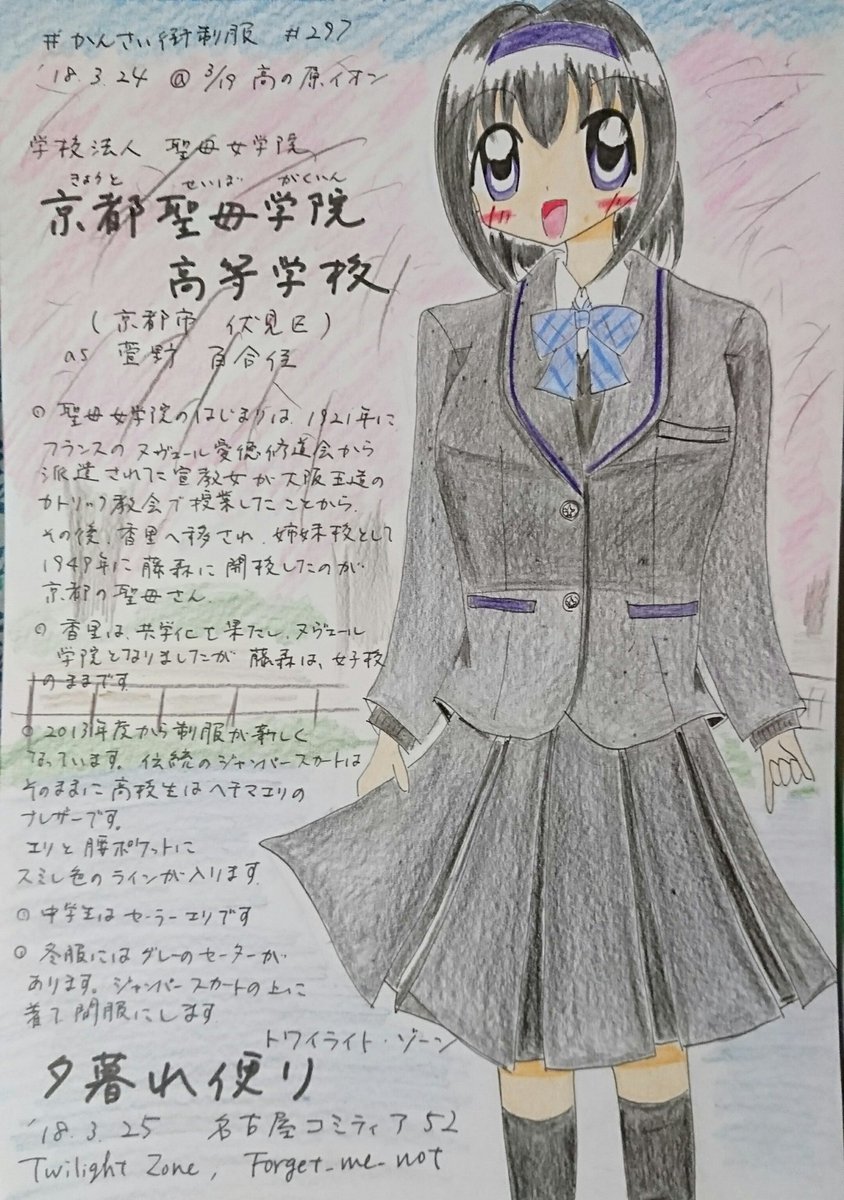 #かんさい街制服 #297
'18.3.24 @ 3/19 高の原イオン
学校法人 聖母女学院
きょうと せいぼ がくいん
京都聖母学院
高等学校
(京都市 伏見区)
as 萱野 百合佳
○ 聖母女学院のはじまりは、1921年に
フランスの ヌヴェール愛徳修道会から
派遣されてた宣教女が大阪玉造の
カトリック教会で授業したことから.
その後、香里へ移され、姉妹校として
1949年に 藤森に 開校したのが
京都の聖母さん.
○ 香里は、共学化を果たし、ヌヴェール
学院となりましたが 藤森は、女子校
のままです.
○ 2013年度から制服が新しく
なっています。伝統のジャンパースカートは
そのままに高校生はヘチマエリの
ブレザーです。
エリと腰ポケットに
スミレ色のラインが入ります.
○ 中学生はセーラーエリです
○ 冬服にはグレーのセーターが
あります。ジャンパースカートの上に
着て間服にします
トワイライト・ゾーン
夕暮れ便り
'18.3.25 名古屋コミティア52
Twilight Zone, Forget_me_not